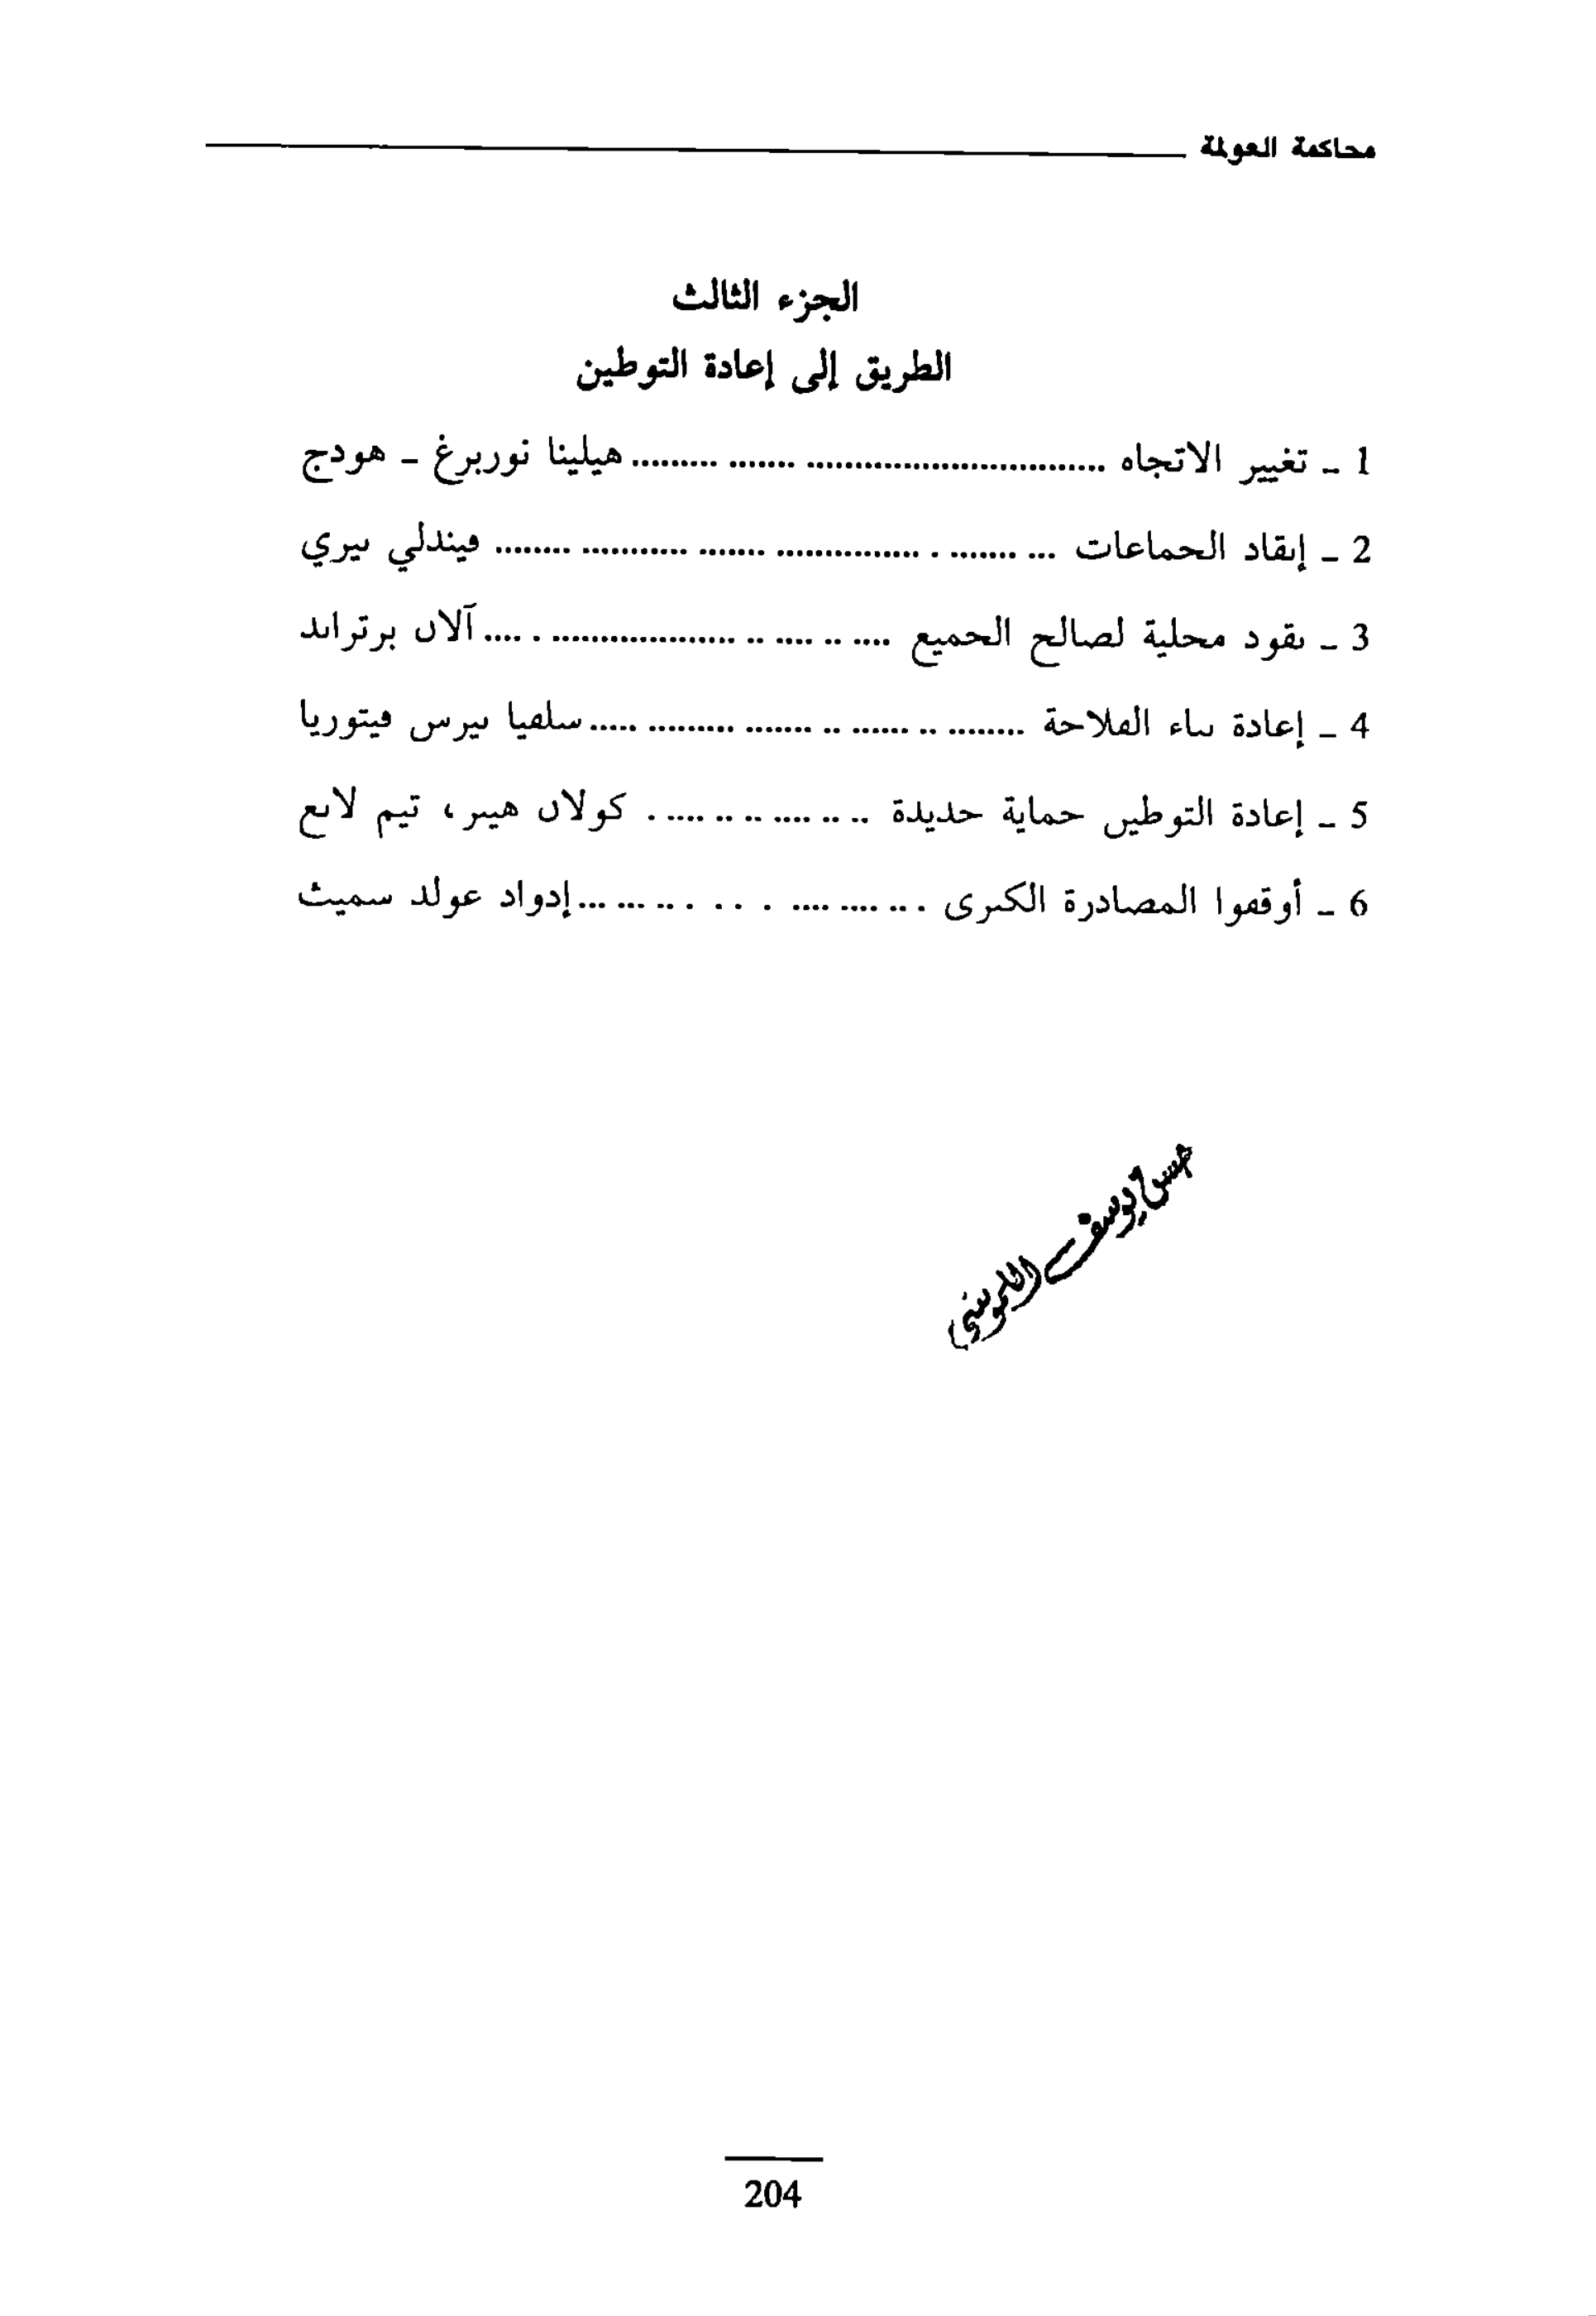 محاكمة العولمة
الجزء الثالث
الطريق إلى إعادة التوطين
1 - تغيير الاتجاه ........................................ هيلينا نوربرغ - هودج
2 - إنقاد الجماعات ........................................ فيندلي بيري
3 - نقود محلية لصالح الجميع ........................................ آلان برتراند
4 - إعادة بناء الفلاحة ........................................ سلفيا بيرس فيتوريا
5 - إعادة التوطين حماية جديدة ........................................ كولان هيبر، تيم لانغ
6 - أوقفوا المصادرة الكبرى ........................................ إدواد غولد سميث
حسن يوسف
204